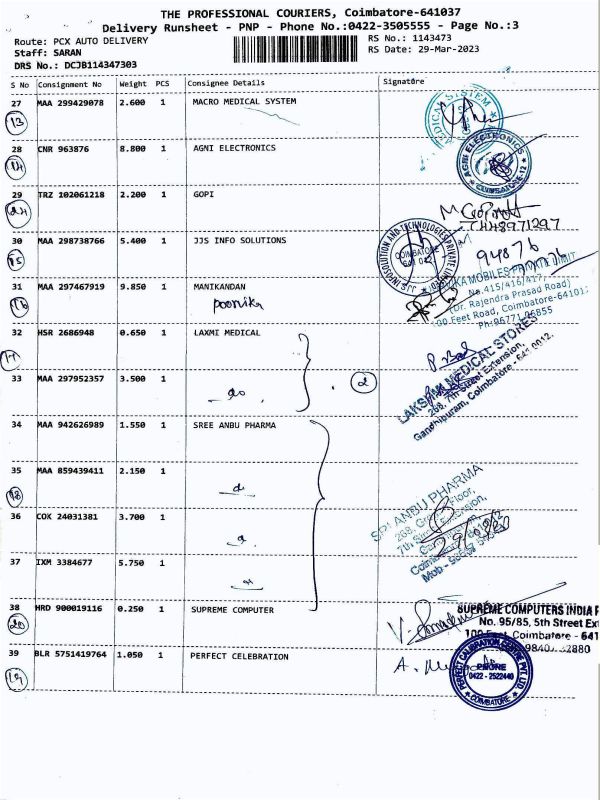 THE PROFESSIONAL COURIERS, Coimbatore-641037
Delivery Runsheet - PNP - Phone No.:0422-3505555 - Page No.:3
Route: PCX AUTO DELIVERY
RS No.: 1143473
Staff: SARAN
RS Date: 29-Mar-2023
DRS No.: DCJB114347303
S No Consignment No Weight PCS Consignee Details Signature
27 MAA 299429078 2.600 1 MACRO MEDICAL SYSTEM
13
28 CNR 963876 8.800 1 AGNI ELECTRONICS
14
AGNI ELECTRONICS
COIMBATORE-12
29 TRZ 102061218 2.200 1 GOPI
24
30 MAA 298738766 5.400 1 JJS INFO SOLUTIONS
15
COIMBATORE
94876
31 MAA 297467919 9.850 1 MANIKANDAN
16
poorvika
MOBILES PRIVATE LIMIT
No.415/416/417,
(Dr. Rajendra Prasad Road)
00 Feet Road, Coimbatore-64101
Ph:96771 26855
32 HSR 2686948 0.650 1 LAXMI MEDICAL
17
33 MAA 297952357 3.500 1
do
2
LAKSHMI MEDICAL STORES
268, 7th Street Extension,
Gandhipuram, Coimbatore - 641 0012.
34 MAA 942626989 1.550 1 SREE ANBU PHARMA
35 MAA 859439411 2.150 1
18
SRI ANBU PHARMA
36 COK 24031381 3.700 1
37 IXM 3384677 5.750 1
38 HRD 900019116 0.250 1 SUPREME COMPUTER
20
SUPREME COMPUTERS INDIA P
No. 95/85, 5th Street Ext
Coimbatore - 641
39 BLR 5751419764 1.050 1 PERFECT CELEBRATION
19
PHONE
0422 - 2522440
COIMBATORE